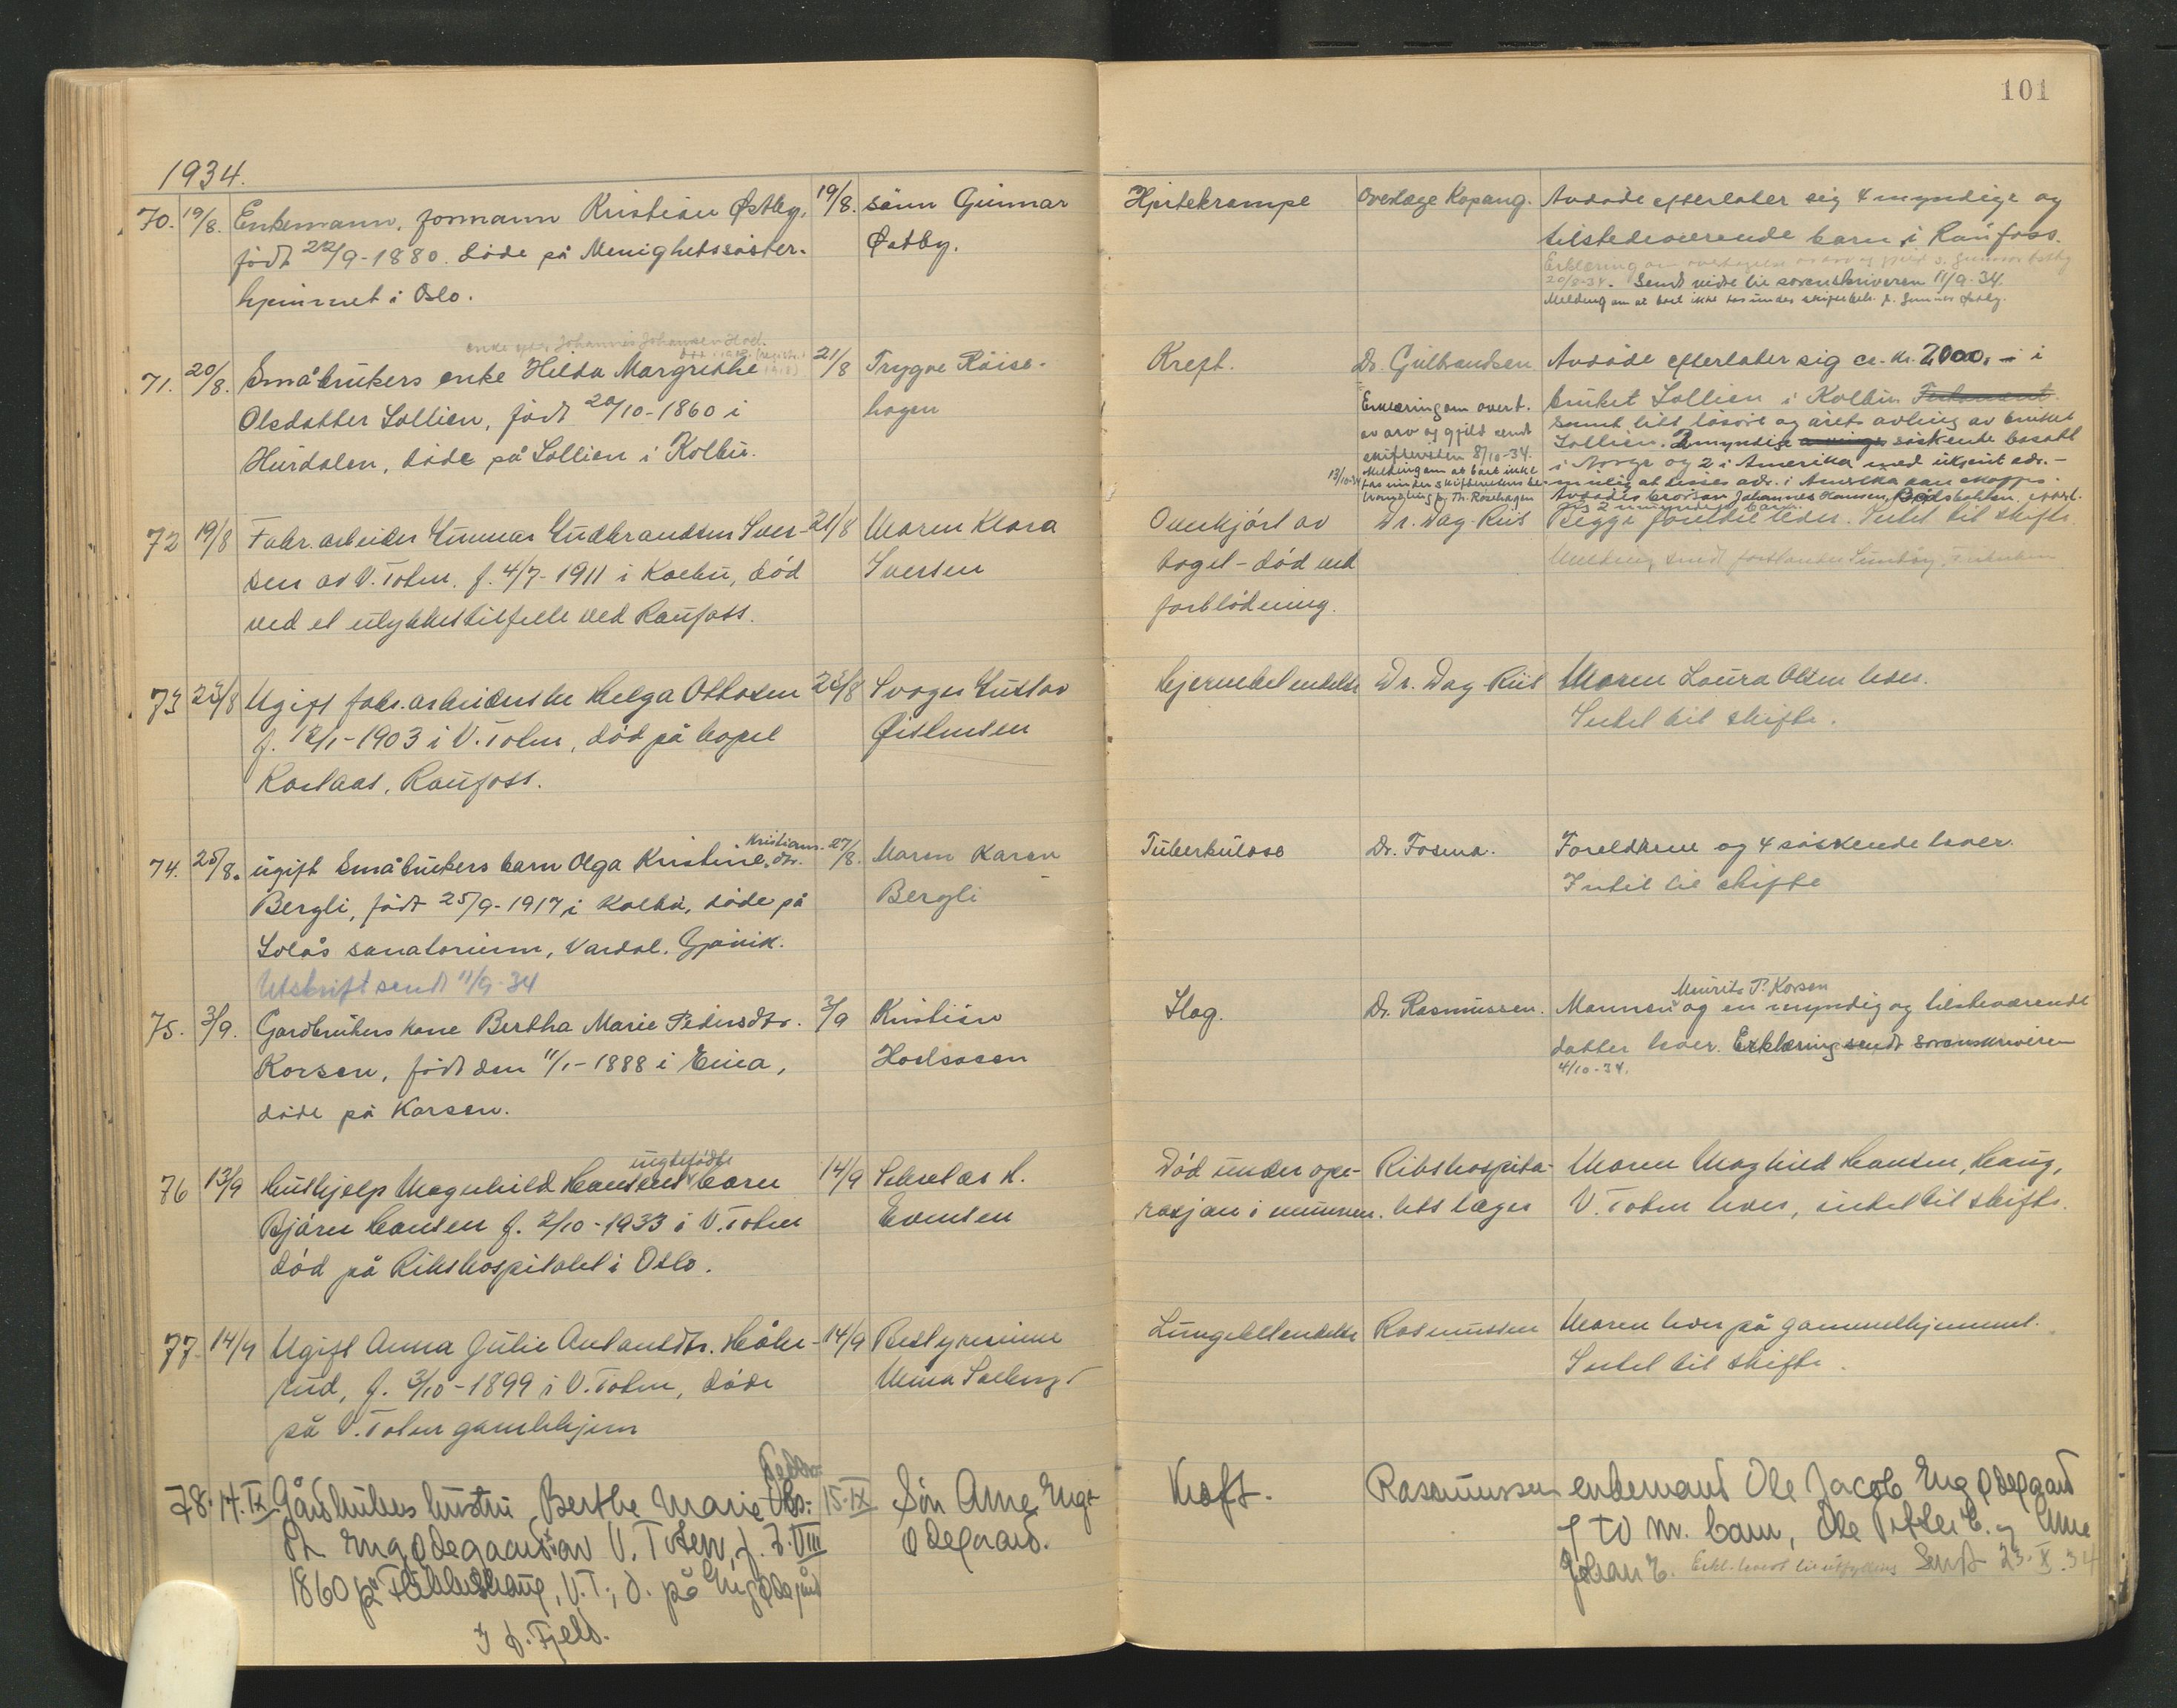 101
1934.
70. 19/8. Enkemann, formann Kristian Østby,
født 22/9-1880. døde på Menighetssøster-
hjemmet i Oslo.
19/8. sønn Gunnar
Østby.
Hjertekrampe
Overlæge Kopang.
Avdøde efterlater sig 4 myndige og
tilstedeværende barn i Raufoss.
Erklæring om overtagelse av arv og gjeld s. Gunnar Østby
20/8-34. Sendt videre til sorenskriveren 11/9-34.
Melding om at boet ikke tas under skiftebeh. f. Gunnar Østby.
enke efter Johannes Johansen Hoel.
71. 20/8. Småbrukers enke Hilda Margrethe
Olsdatter Sollien, født 20/10-1860 i
Hurdalen, døde på Sollien i Kolbu.
21/8 Trygve Røise-
hagen
Kreft.
Dr. Gulbrandsen
Erklæring om overt.
av arv og gjeld sendt
skifteretten 8/10-34.
13/10-34 Melding om at boet ikke
tas under skifterettens be-
handling
Avdøde efterlater sig ca. kr. 2000,- i
bruket Sollien i Kolbu. Testament
samt litt løsøre og årets avling av bruket
Sollien. 2 myndige søskende bosatt
i Norge og 2 i Amerika med ukjent adr. -
mulig at disses adr. i Amerika kan skaffes.
Avdødes brorsøn Johannes Hansen,
72 19/8 Fabr. arbeider Gunnar Gudbrandsen Iver-
sen av V. Toten. f. 4/7-1911 i Kolbu, død
ved et ulykkestilfelle ved Raufoss.
21/8 Moren Klara
Iversen
Overkjørt av
toget - død ved
forblødning.
Dr. Dag Riis
Begge foreldre lever. Intet til skifte.
Melding sendt
73 23/8 Ugift fabr. arbeiderske Helga Ottosen
f. 12/1-1903 i V. Toten, død på
Raufoss.
25/8 Svoger Gustav
Øistensen
Hjernebetendelse
Dr. Dag Riis
Moren Laura Olsen lever.
Intet til skifte.
74. 25/8. ugift Småbrukers barn Olga Kristine Kristians. dtr.
Bergli, født 25/9-1917 i Kolbu, døde på
Solås sanatorium, Vardal. Gjøvik.
Utskrift sendt 11/9-34
27/8. Moren Karen
Bergli
Tuberkulose
Dr. Fosmo.
Foreldrene og 4 søskende lever.
Intet til skifte
75. 3/9. Gardbrukers kone Bertha Marie Pedersdtr.
Korsen, født den 11/1-1888 i Eina,
døde på Korsen.
3/9 Kristian
Hoelsveen
Slag.
Dr. Rasmussen.
Mannen Mauritz P. Korsen og en myndig og tilstedeværende
datter lever. Erklæring sendt sorenskriveren
4/10-34.
76 13/9 Hushjelp Magnhild Hansens uegtefødte barn
Bjørn Hansen f. 2/10-1933 i V. Toten
død på Rikshospitalet i Oslo.
14/9
Evensen
Død under ope-
rasjon i munnen.
Rikshospita-
lets læger
Moren Magnhild Hansen, Haug,
V. Toten lever, intet til skifte.
77. 14/9 Ugift Anna Julie Antonsdtr. Håke-
rud, f. 3/10-1899 i V. Toten, døde
på V. Toten gamlehjem
14/9 Bestyrerinne
Lungebetendelse
Rasmussen
Moren lever på gammelhjemmet.
Intet til skifte.
78. 14.IX Gårdbrukers hustru Berthe Marie
Engødegaard av V. Toten, f. 7.VIII
1860 på, V.T; d. på Engødegård
15.IX Søn Arne Eng-
ødegaard.
Kreft.
Rasmussen
enkemand Ole Jacob Engødegaard
og to m. barn, Ole Petter E. og Arne
Johan E. Sendt 23.X.34